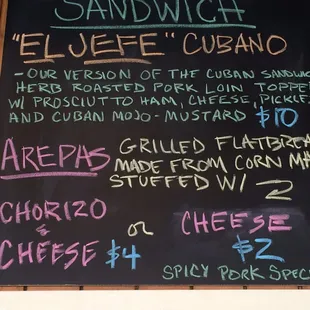 SANDWICH
"EL JEFE" CUBANO
- OUR VERSION OF THE CUBAN SANDWIC
HERB ROASTED PORK LOIN TOPPE
W/ PROSCIUTTO HAM, CHEESE, PICKLE
AND CUBAN MOJO-MUSTARD $10
AREPAS GRILLED FLATBREA
MADE FROM CORN MA
STUFFED W/
CHORIZO
& CHEESE $4
OR
CHEESE
$2
SPICY PORK SPEC